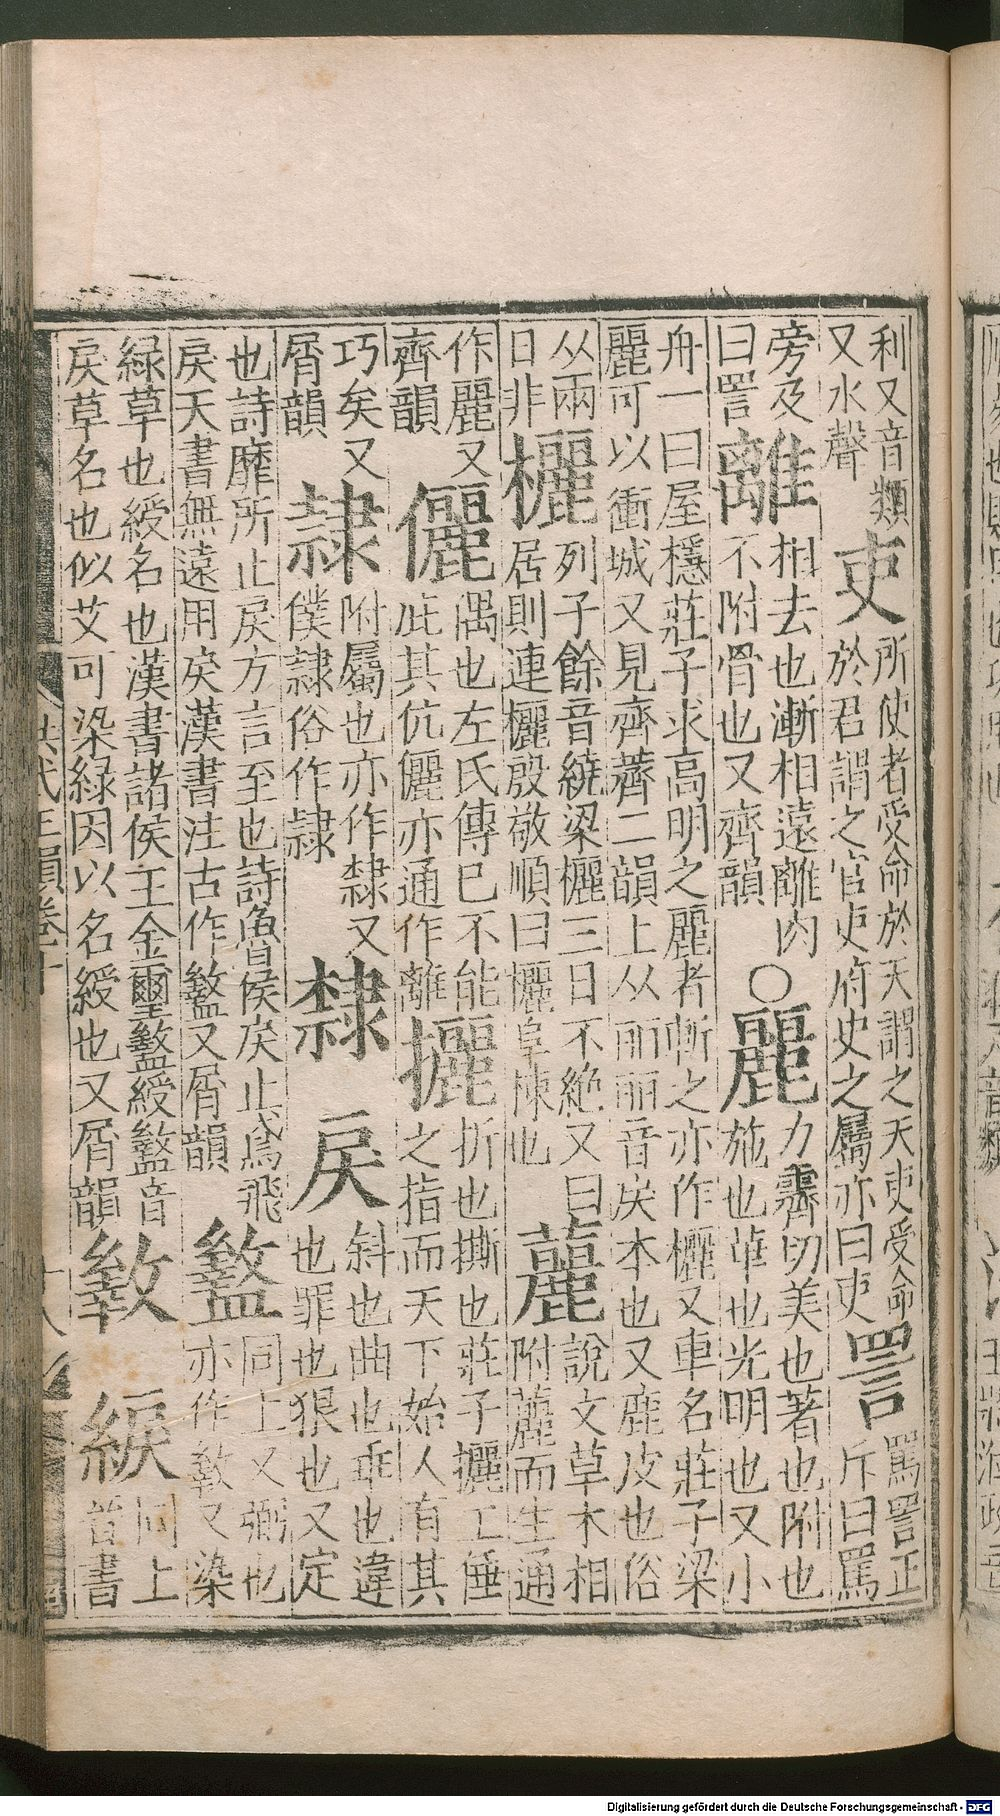 利又音類
又水聲
吏
所使者受命於天謂之天吏受命
於君謂之官吏府史之屬亦曰吏
詈
罵詈正
斥曰罵
旁及
曰詈
離
相去也漸相遠離肉
不附骨也又齊韻
○麗
力霽切美也著也附也
施也華也光明也又小
舟一曰屋穩莊子求高明之麗者斬之亦作欐又車名莊子梁
麗可以衝城又見齊薺二韻上从丽丽音戾本也又鹿皮也俗
从兩
日非
欐
列子餘音繞梁欐三日不絶又曰
居則連欐殷敬順曰欐阜棟也
䕻
說文草木相
附䕻而生通
作麗又
齊韻
儷
偶也左氏傳已不能
庇其伉儷亦通作離
攦
折也撕也莊子攦工倕
之指而天下始人有其
巧矣又
屑韻
隷
附屬也亦作隸又
僕隷俗作隷
隸
戾
斜也曲也乖也違
也罪也狠也又定
也詩靡所止戾方言至也詩魯侯戾止鳶飛
戾天書無遠用戾漢書注古作盭又屑韻
盭
同上又弼也
亦作𢿛又染
緑草也綬名也漢書諸侯王金璽盭綬盭音
戾草名也似艾可染緑因以名綬也又屑韻
𢿛
綟
同上
晉書
洪武正韻卷十
十八
Digitalisierung gefördert durch die Deutsche Forschungsgemeinschaft - DFG